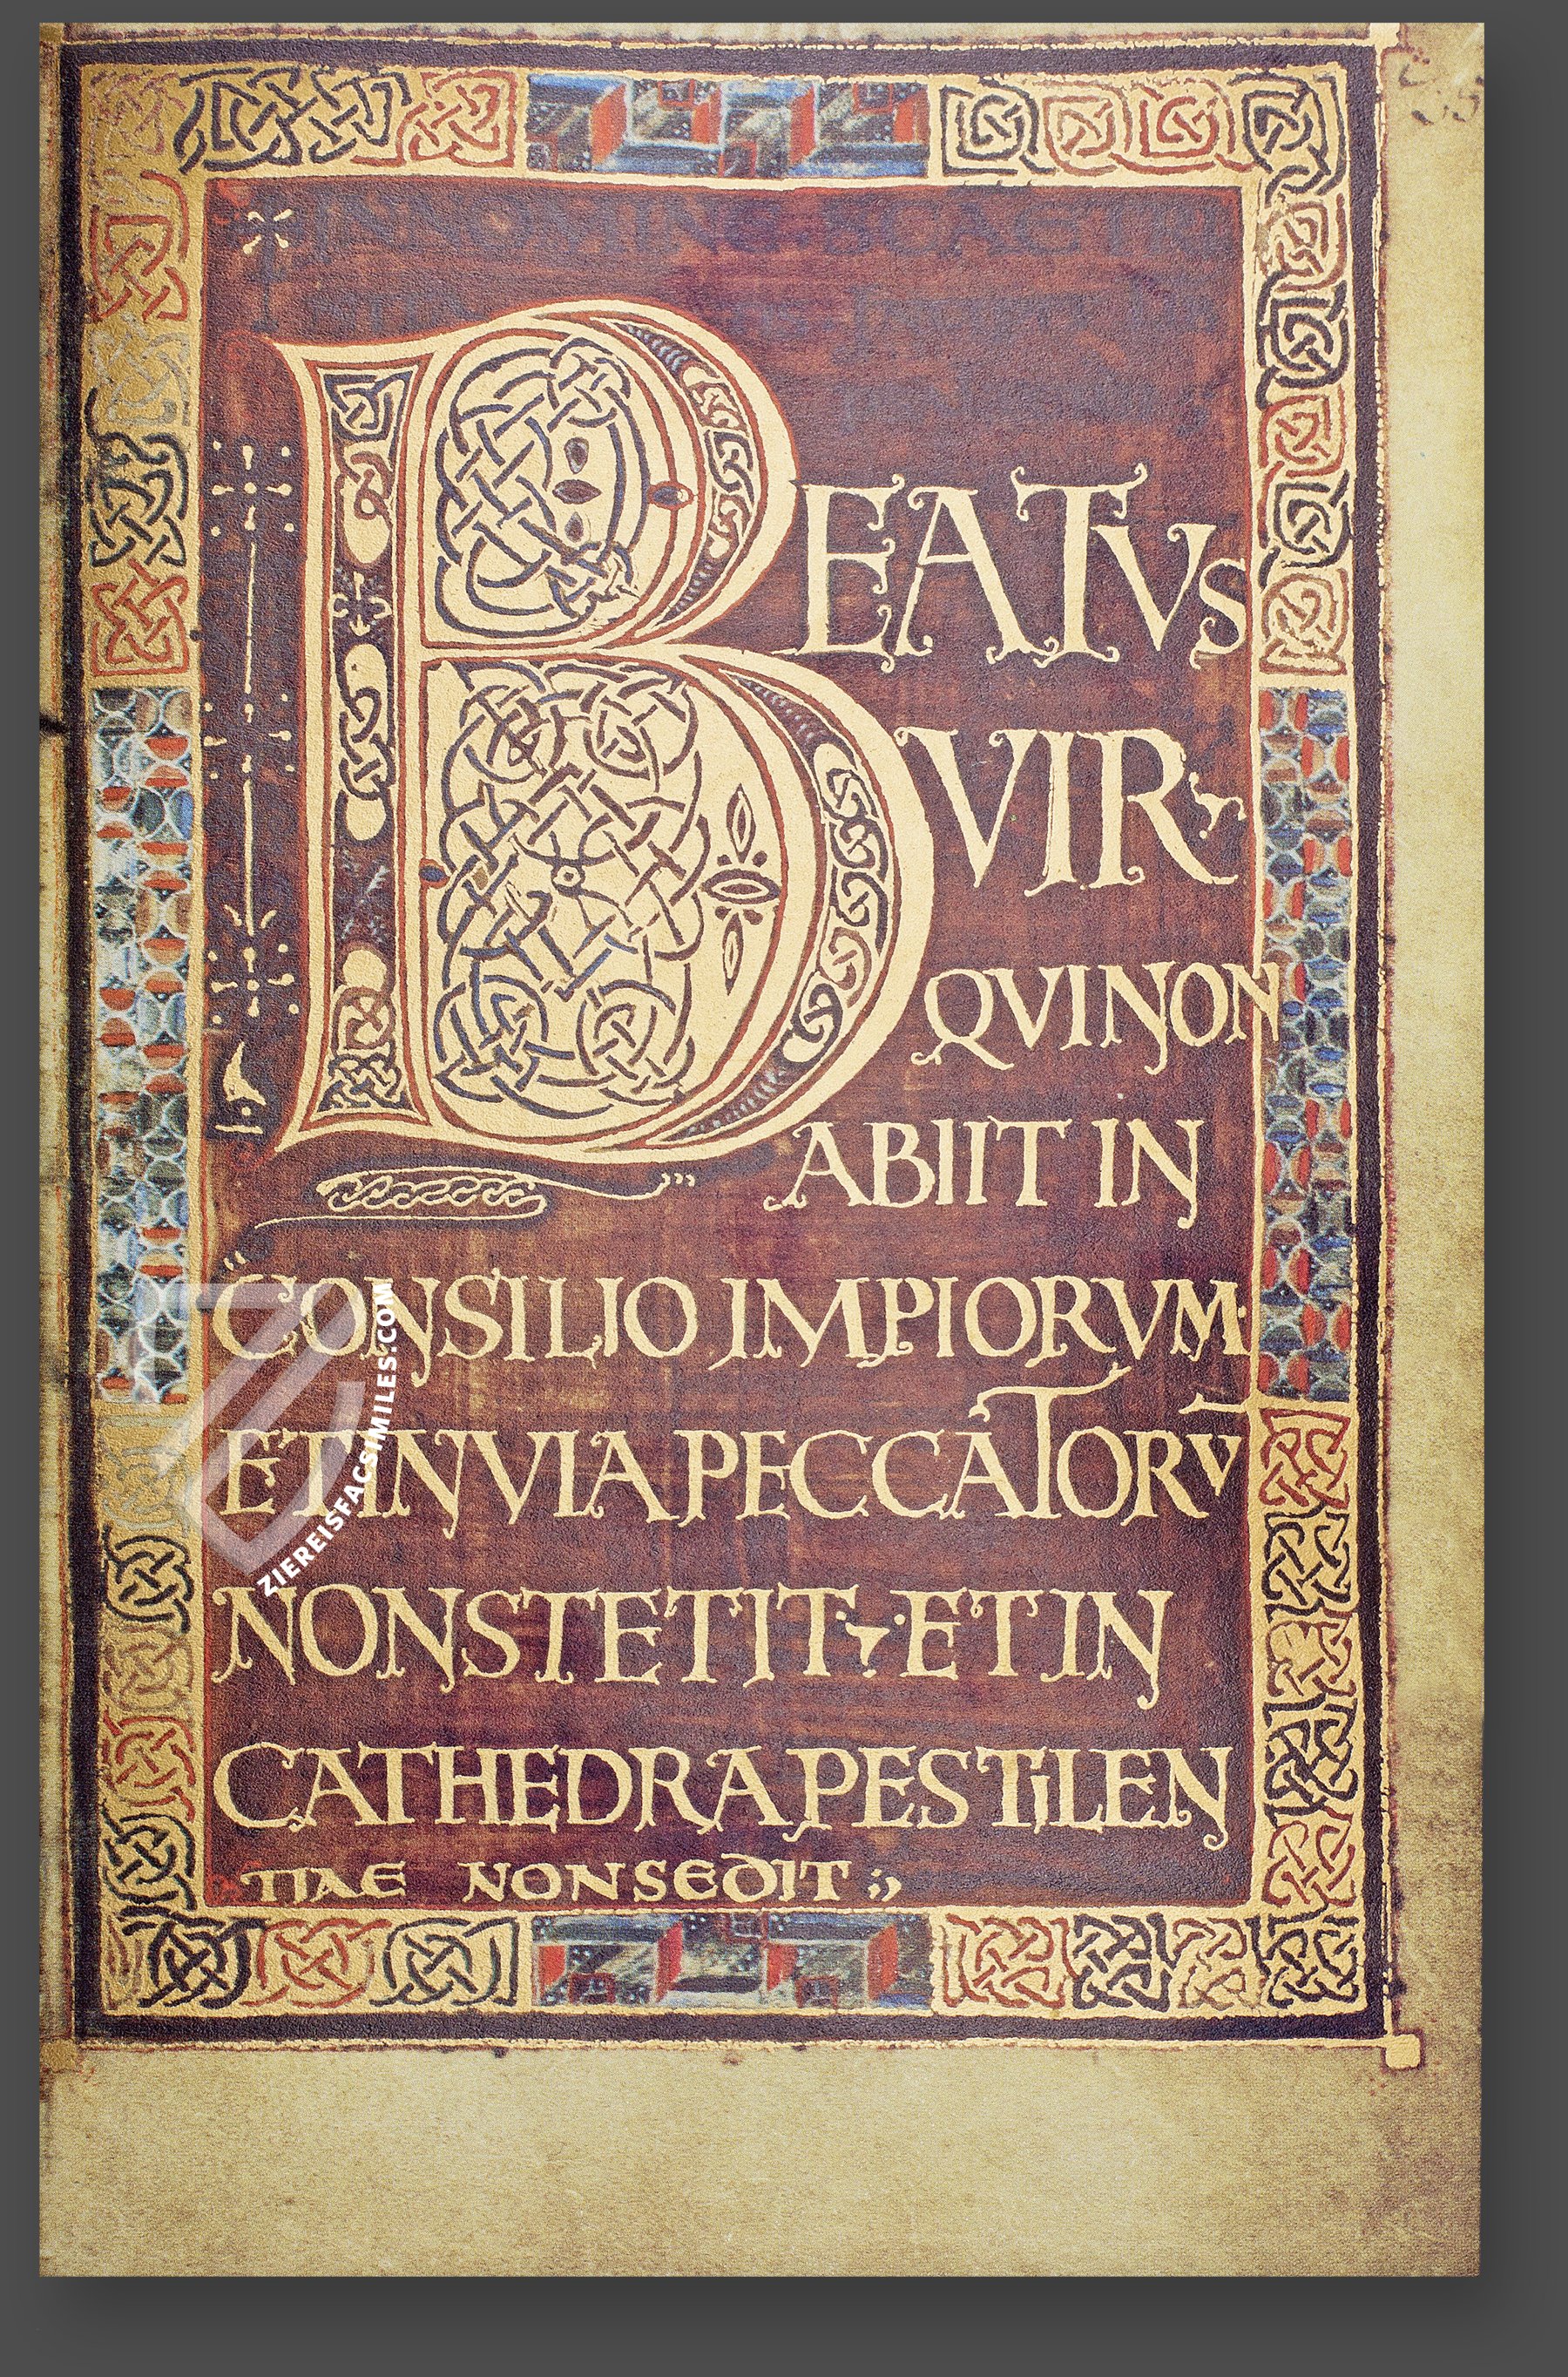 BEATVS
VIR
QVINON
ABIIT IN
CONSILIO IMPIORVM·
ET IN VIA PECCATORV̄
NONSTETIT· ET IN
CATHEDRA PESTILEN
TIAE NONSEDIT
ZIEREISFACSIMILES.COM